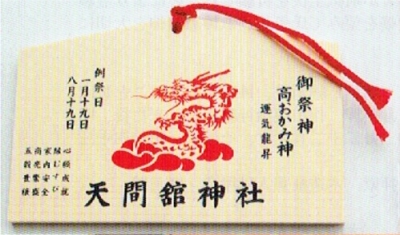 御祭神
高おかみ神
運気龍昇
例祭日
一月十九日
八月十九日
心願成就
縁むすび
家内安全
商売繁盛
五穀豊穣
天間舘神社